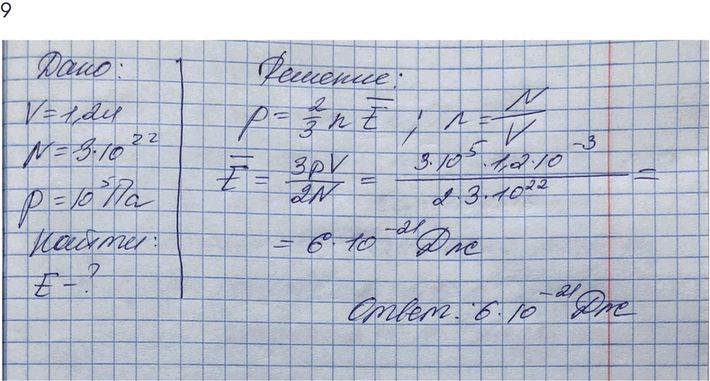 9
Дано:
V=1,2л
N=3·10²²
p=10⁵Па
Найти:
E-?
Решение:
p=2/3 n E̅ ; n=N/V
E̅ = 3pV/2N = 3·10⁵·1,2·10⁻³/2·3·10²² =
= 6·10⁻²¹ Дж
Ответ: 6·10⁻²¹ Дж